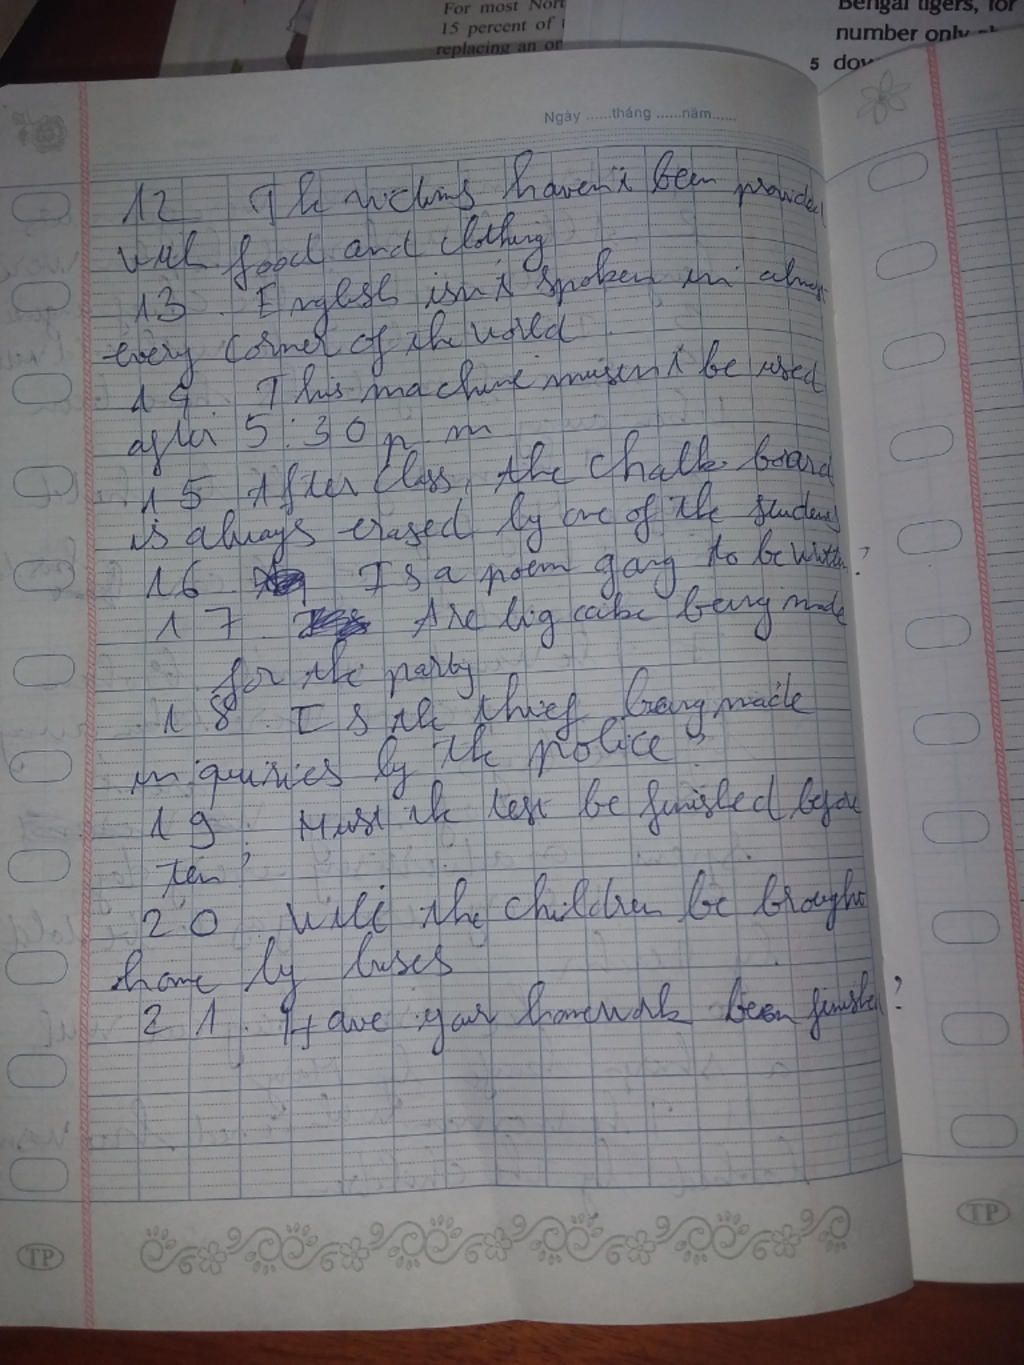 For most Nort
15 percent of
replacing an or
Bengal tigers, for
number only
5 dow
Ngày ......tháng ......năm......
12 The victims haven't been provided
with food and clothing
13. English isn't spoken in almost
every corner of the world
14. This machine musn't be used
after 5:30 p m
15 After class, the chalk board
is always erased by one of the students
16 Is a poem gong to be written?
17. Are big cake being made
for the party
18. Is the thief being made
inquiries by the police?
19. Must the test be finished before
ten?
20. Will the children be brought
home by buses
21. Have your homework been finished?
TP
TP